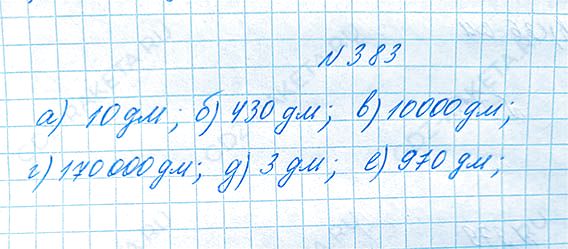 N 383
а) 10 дм; б) 430 дм; в) 10000 дм;
г) 170000 дм; д) 3 дм; е) 970 дм;